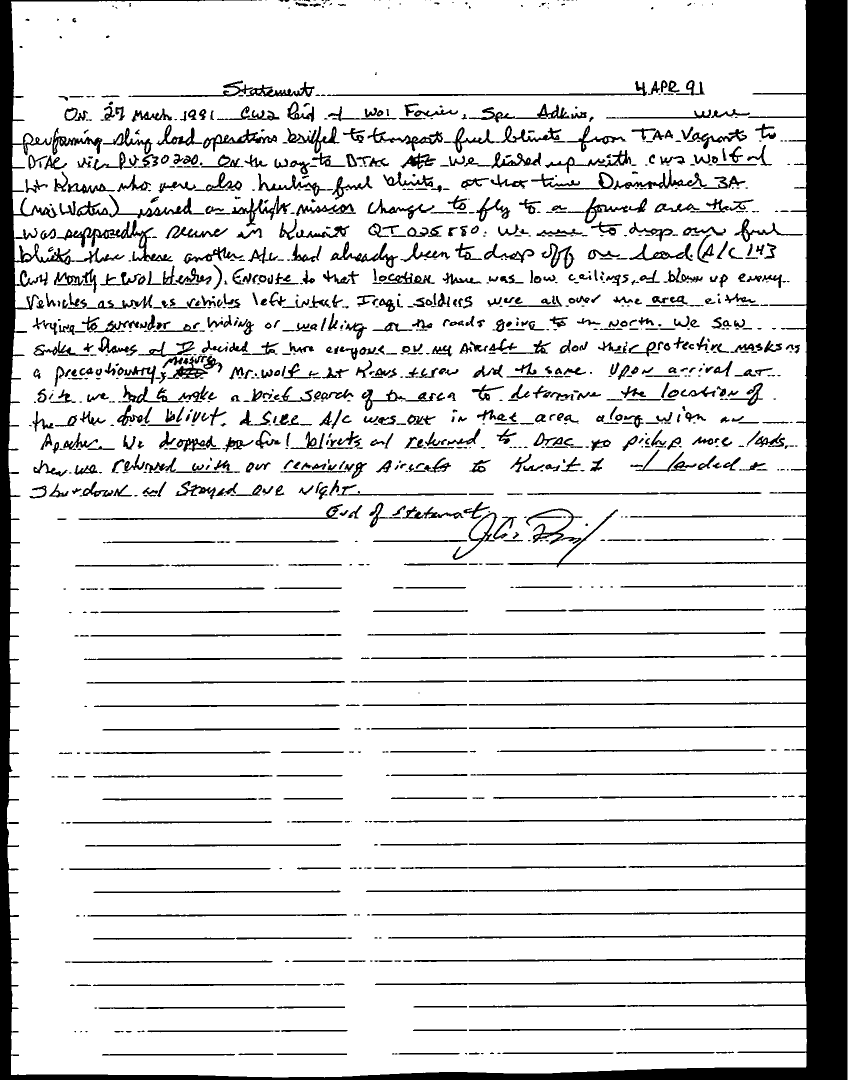 Statement 4 APR 91
On 27 March 1991 CW2 Reid & WO1 Fozier, Spc Adkins, were
performing sling load operations briffed to transport fuel blivets from TAA Vagrants to
DTAC vic. PU530220. On the way to DTAC we linked up with CW2 Wolf &
Lt Kraus who were also hauling fuel blivits, at that time Diamondback 3A
(Maj Waters) issued an inflight mission change to fly to a forward area that
was supposedly secure in Kuwait QT 025550. We were to drop our fuel
blivits there where another A/c had already been to drop off one load. (A/C 143
CW4 Month + WO1 ). Enroute to that location there was low ceilings, & blown up enemy
vehicles as well as vehicles left intact. Iraqi soldiers were all over the area either
trying to surrender or hiding or walking on the roads going to the North. We saw
smoke + flames & I decided to have everyone on my Aircraft to don their protective masks as
a precautionary measure, Mr. Wolf + Lt Kraus + crew did the same. Upon arrival at
Site we had to make a brief search of the area to determine the location of
the other fuel blivet. A A/C was out in that area along with an
Apache. We dropped fuel blivets and returned to DTAC to pickup more loads,
then we returned with our remaining Aircraft to Kuwait & landed &
Shutdown and Stayed one night.
End of statement